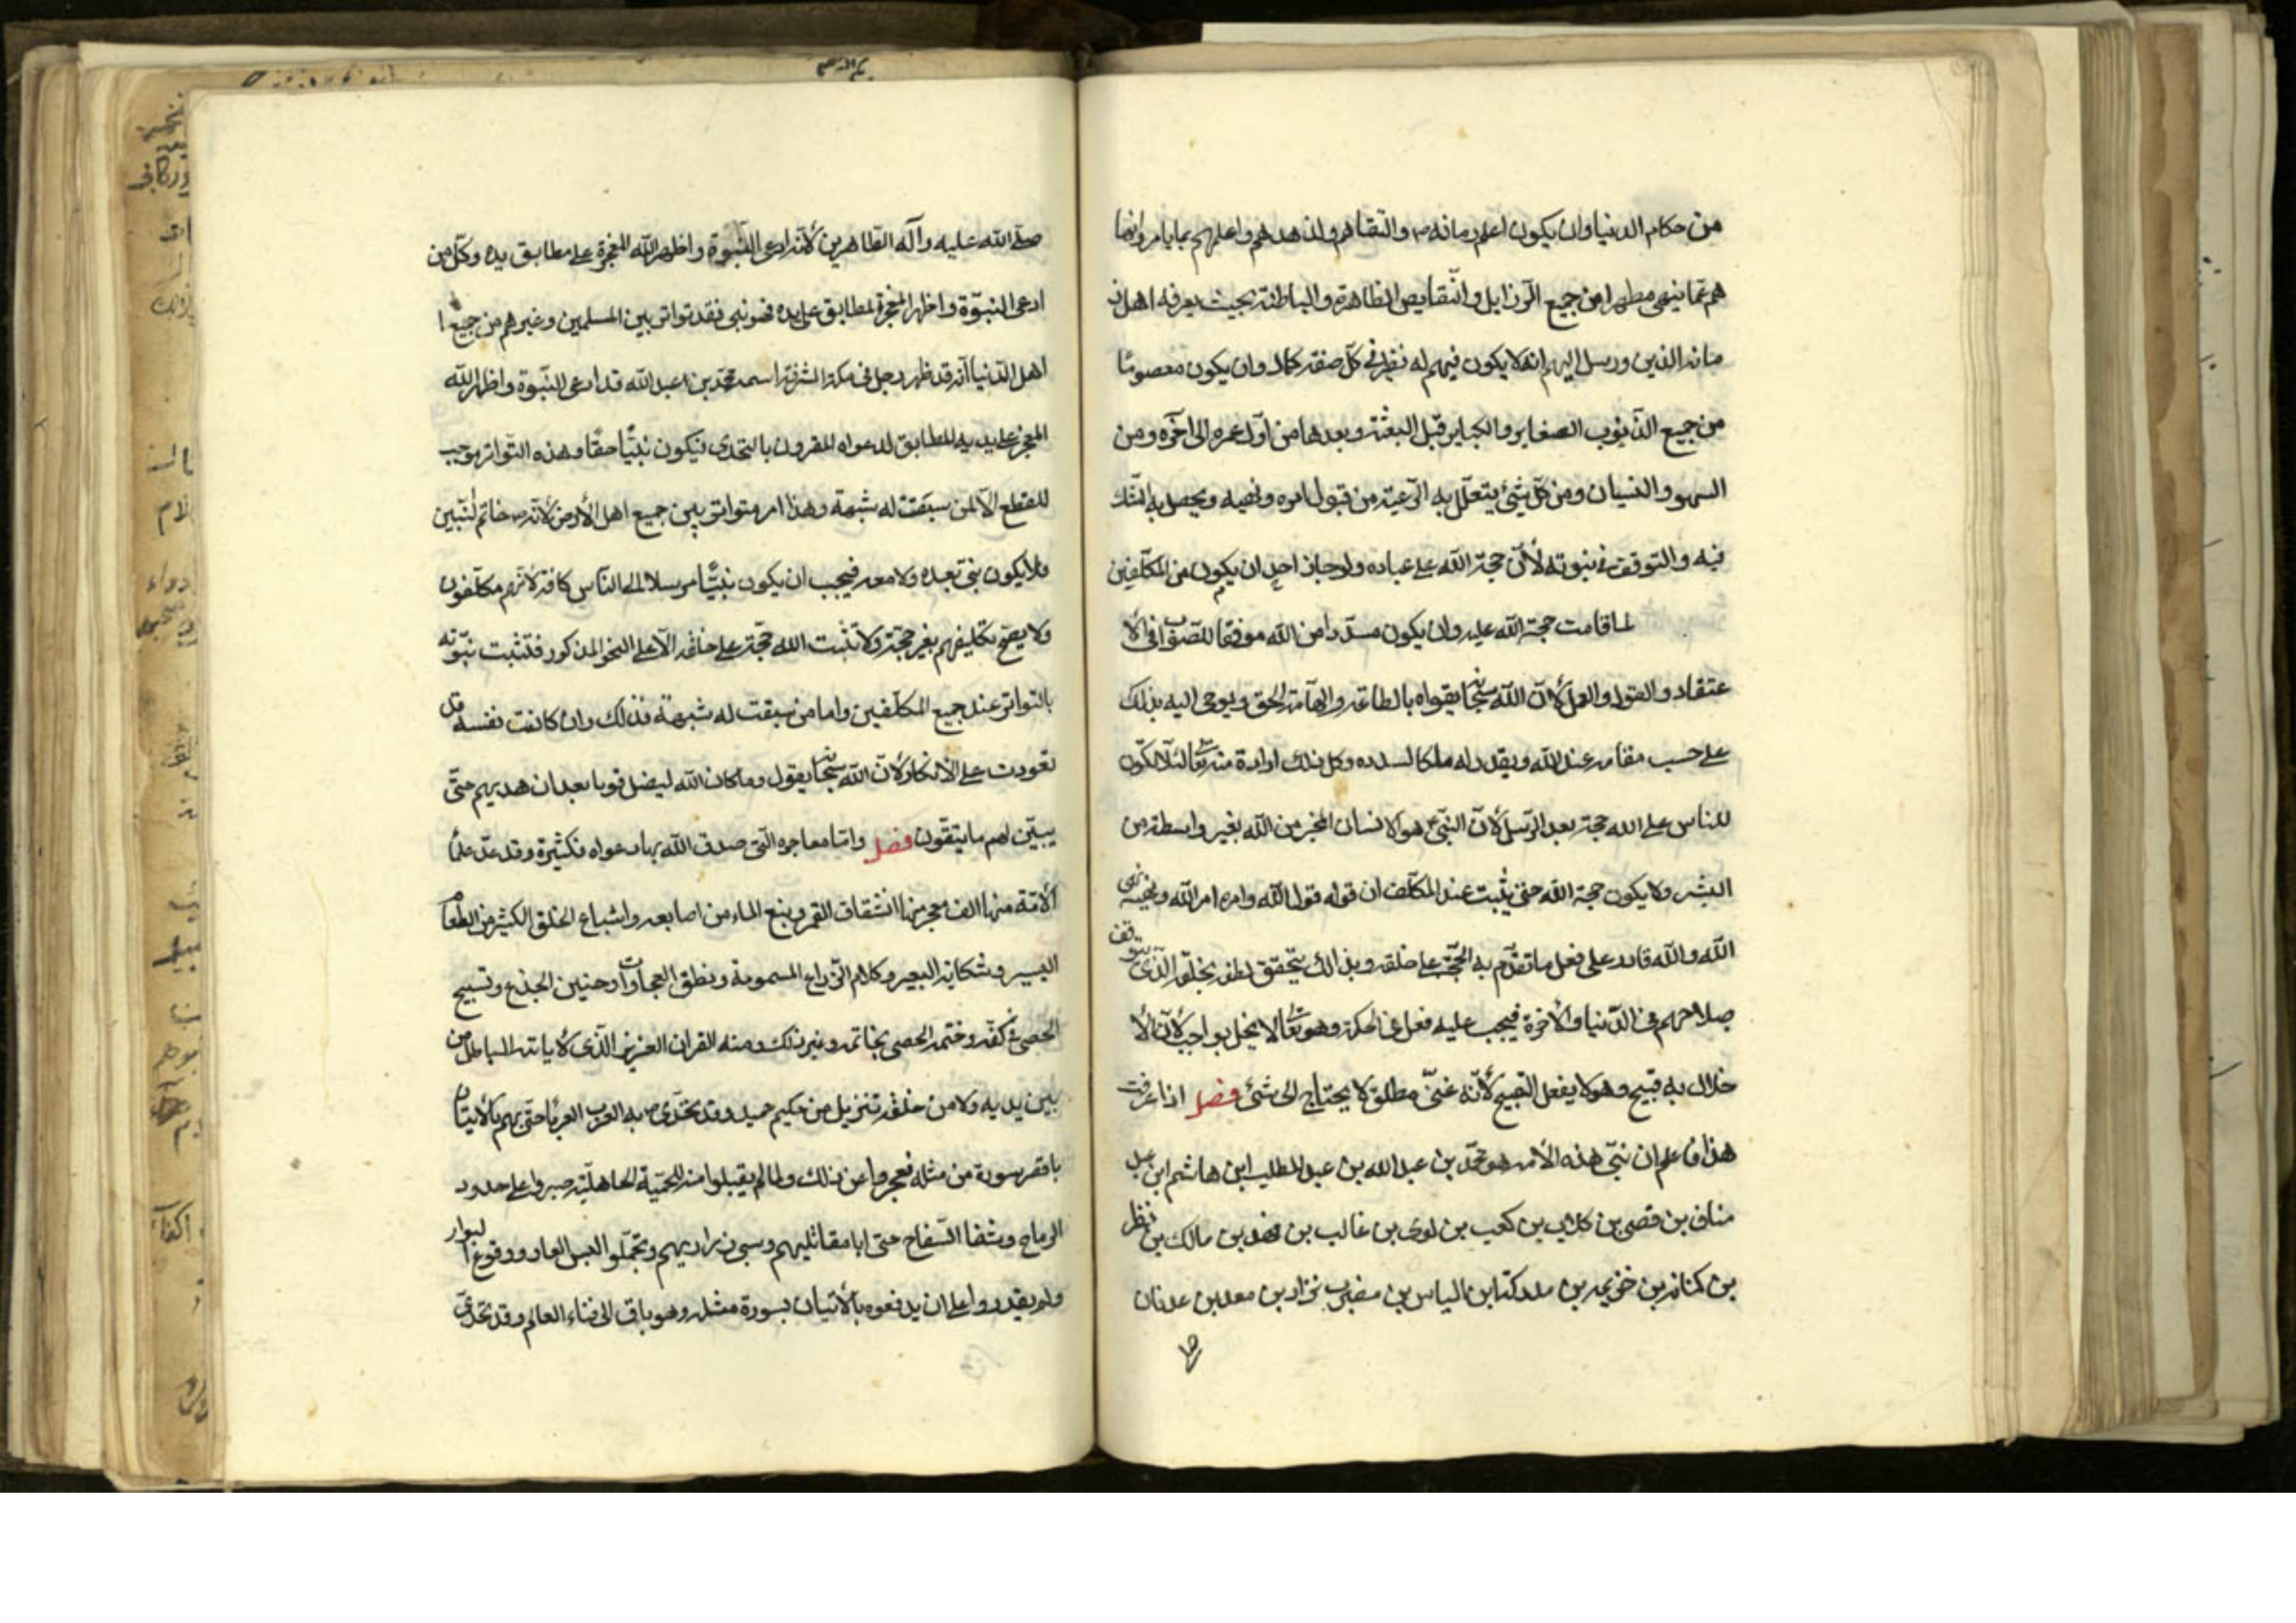 من حكام الدنيا وان يكون اعلم زمانه ص واتقاهم وازهدهم واعلمهم بما يامر وانها
هم عما ينهى مطهرا من جميع الرزايل والنقايص الظاهرة والباطنة بحيث يعرفه اهل ز
مانه الذين ورسل اليهم انه لا يكون فيهم له نظير في كل صفة كمال وان يكون معصومًا
من جميع الذنوب الصغاير والكباير قبل البعثة وبعدها من اول عمره الى آخره ومن
السهو والنسيان ومن كل شيئ يتعلل به الرعية من قبول امره ونهيه ويحصل به الشك
فيه والتوقف في نبوته لأن حجة الله على عباده ولو جاز احل ان يكون من المكلفين
لما قامت حجة الله عليه وان يكون مسددا من الله موفقا للصواب في الأ
عتقاد والقول والعمل لأن الله سبحانه يقواه بالطاعة والهامة الحق ويوحى اليه بذلك
على حسب مقامه عند الله ويقدر له ملكا يسدده وكل ذلك ارادة منه تعالى لئلا يكون
للناس على الله حجة بعد الرسل لأن النبي ع هو الانسان المخبر من الله بغير واسطة من
البشر ولا يكون حجة الله حتى يثبت عند المكلف ان قوله قول الله وامره امر الله ونهيه نهى
الله والله قادر على فعل ما تقوم به الحجة على خلقه وبذالك يتحقق لطفه بخلقه الذى يتوقف
صلاحهم في الدنيا والأخرة فيجب عليه فعل في الحكمة وهو تعالى لا يخل بواجب لأن الأ
خلال به قبيح وهو لا يفعل القبيح لأنه غنى مطلق لا يحتاج الى شئ فصل اذا عرفت
هذا فاعلم ان نبى هذه الأمة هو محمد بن عبد الله بن عبد المطلب ابن هاشم ابن عبد
مناف بن قصى بن كلاب بن كعب بن لوى بن غالب بن فهد بن مالك بن نظر
بن كنانة بن خزيمه بن مدركة ابن الياس بن مضر بن نزار بن معد بن عدنان
صلى الله عليه وآله الطاهرين لأنه ادعى النبوة واظهر الله المعجزة على مطابق يده وكل من
ادعى النبوة واظهر المعجزة لمطابق على يده فهو نبى فقد تواتر بين المسلمين وغيرهم من جميع ا
اهل الدنيا انه قد ظهر رجل في مكة الشرفة اسمه محمد بن عبد الله قد ادعى النبوة واظهر الله
المعجز على يديه المطابق لدعواه المقرون بالتحدى فيكون نبيًا حقًا وهذه التواتر موجب
للقطع الا لمن سبقت له شبهة وهذا امر متواتر بين جميع اهل الأرض لأنه ص خاتم النبيين
ولا يكون نبى بعده ولا معه فيجب ان يكون نبيًا مرسلا الى الناس كافة لانهم مكلفون
ولا يصح تكليفهم بغير حجة ولا تثبت الله حجة على خلقه الا على النحو المذكور فتثبت نبوته
بالتواتر عند جميع المكلفين واما من سبقت له شبهة فذلك وان كانت نفسه قد
تعودت على الأنكار لأن الله سبحانه يقول وما كان الله ليضل قوما بعد ان هديهم حتى
يبين لهم ما يتقون فصل واما معاجزه التى صدق الله بها دعواه فكثيرة وقد عد علما
الأمة منها الف معجز منها انشقاق القمر ونبع الماء من اصابعه واشباع الخلق الكثير من الطعام
اليسير وشكاية البعير وكلام الذراع المسمومة ونطق العجماوات وحنين الجذع وتسبيح
الحصى في كفه وختمه الحصى بخاتمه وغير ذلك ومنه القران العزيز الذى لا ياتيه الباطل من
بين يديه ولا من خلفه تنزيل من حكيم حميد وقد تحدى ص به العرب العربا حتى بهم بالأيتان
باقصر سورة من مثله فعجزوا عن ذلك ولما لم يقبلوا منه الحمية الجاهلية صبروا على حدود
الرماح وشفا الصفاح حتى ابا مقاتليهم وسبى ذراريهم وتحملوا العار ووقوع البوار
ولم يقدروا على ان يدفعوه بالأتيان بسورة مثله وهو باق الى فناء العالم وقد تحدى